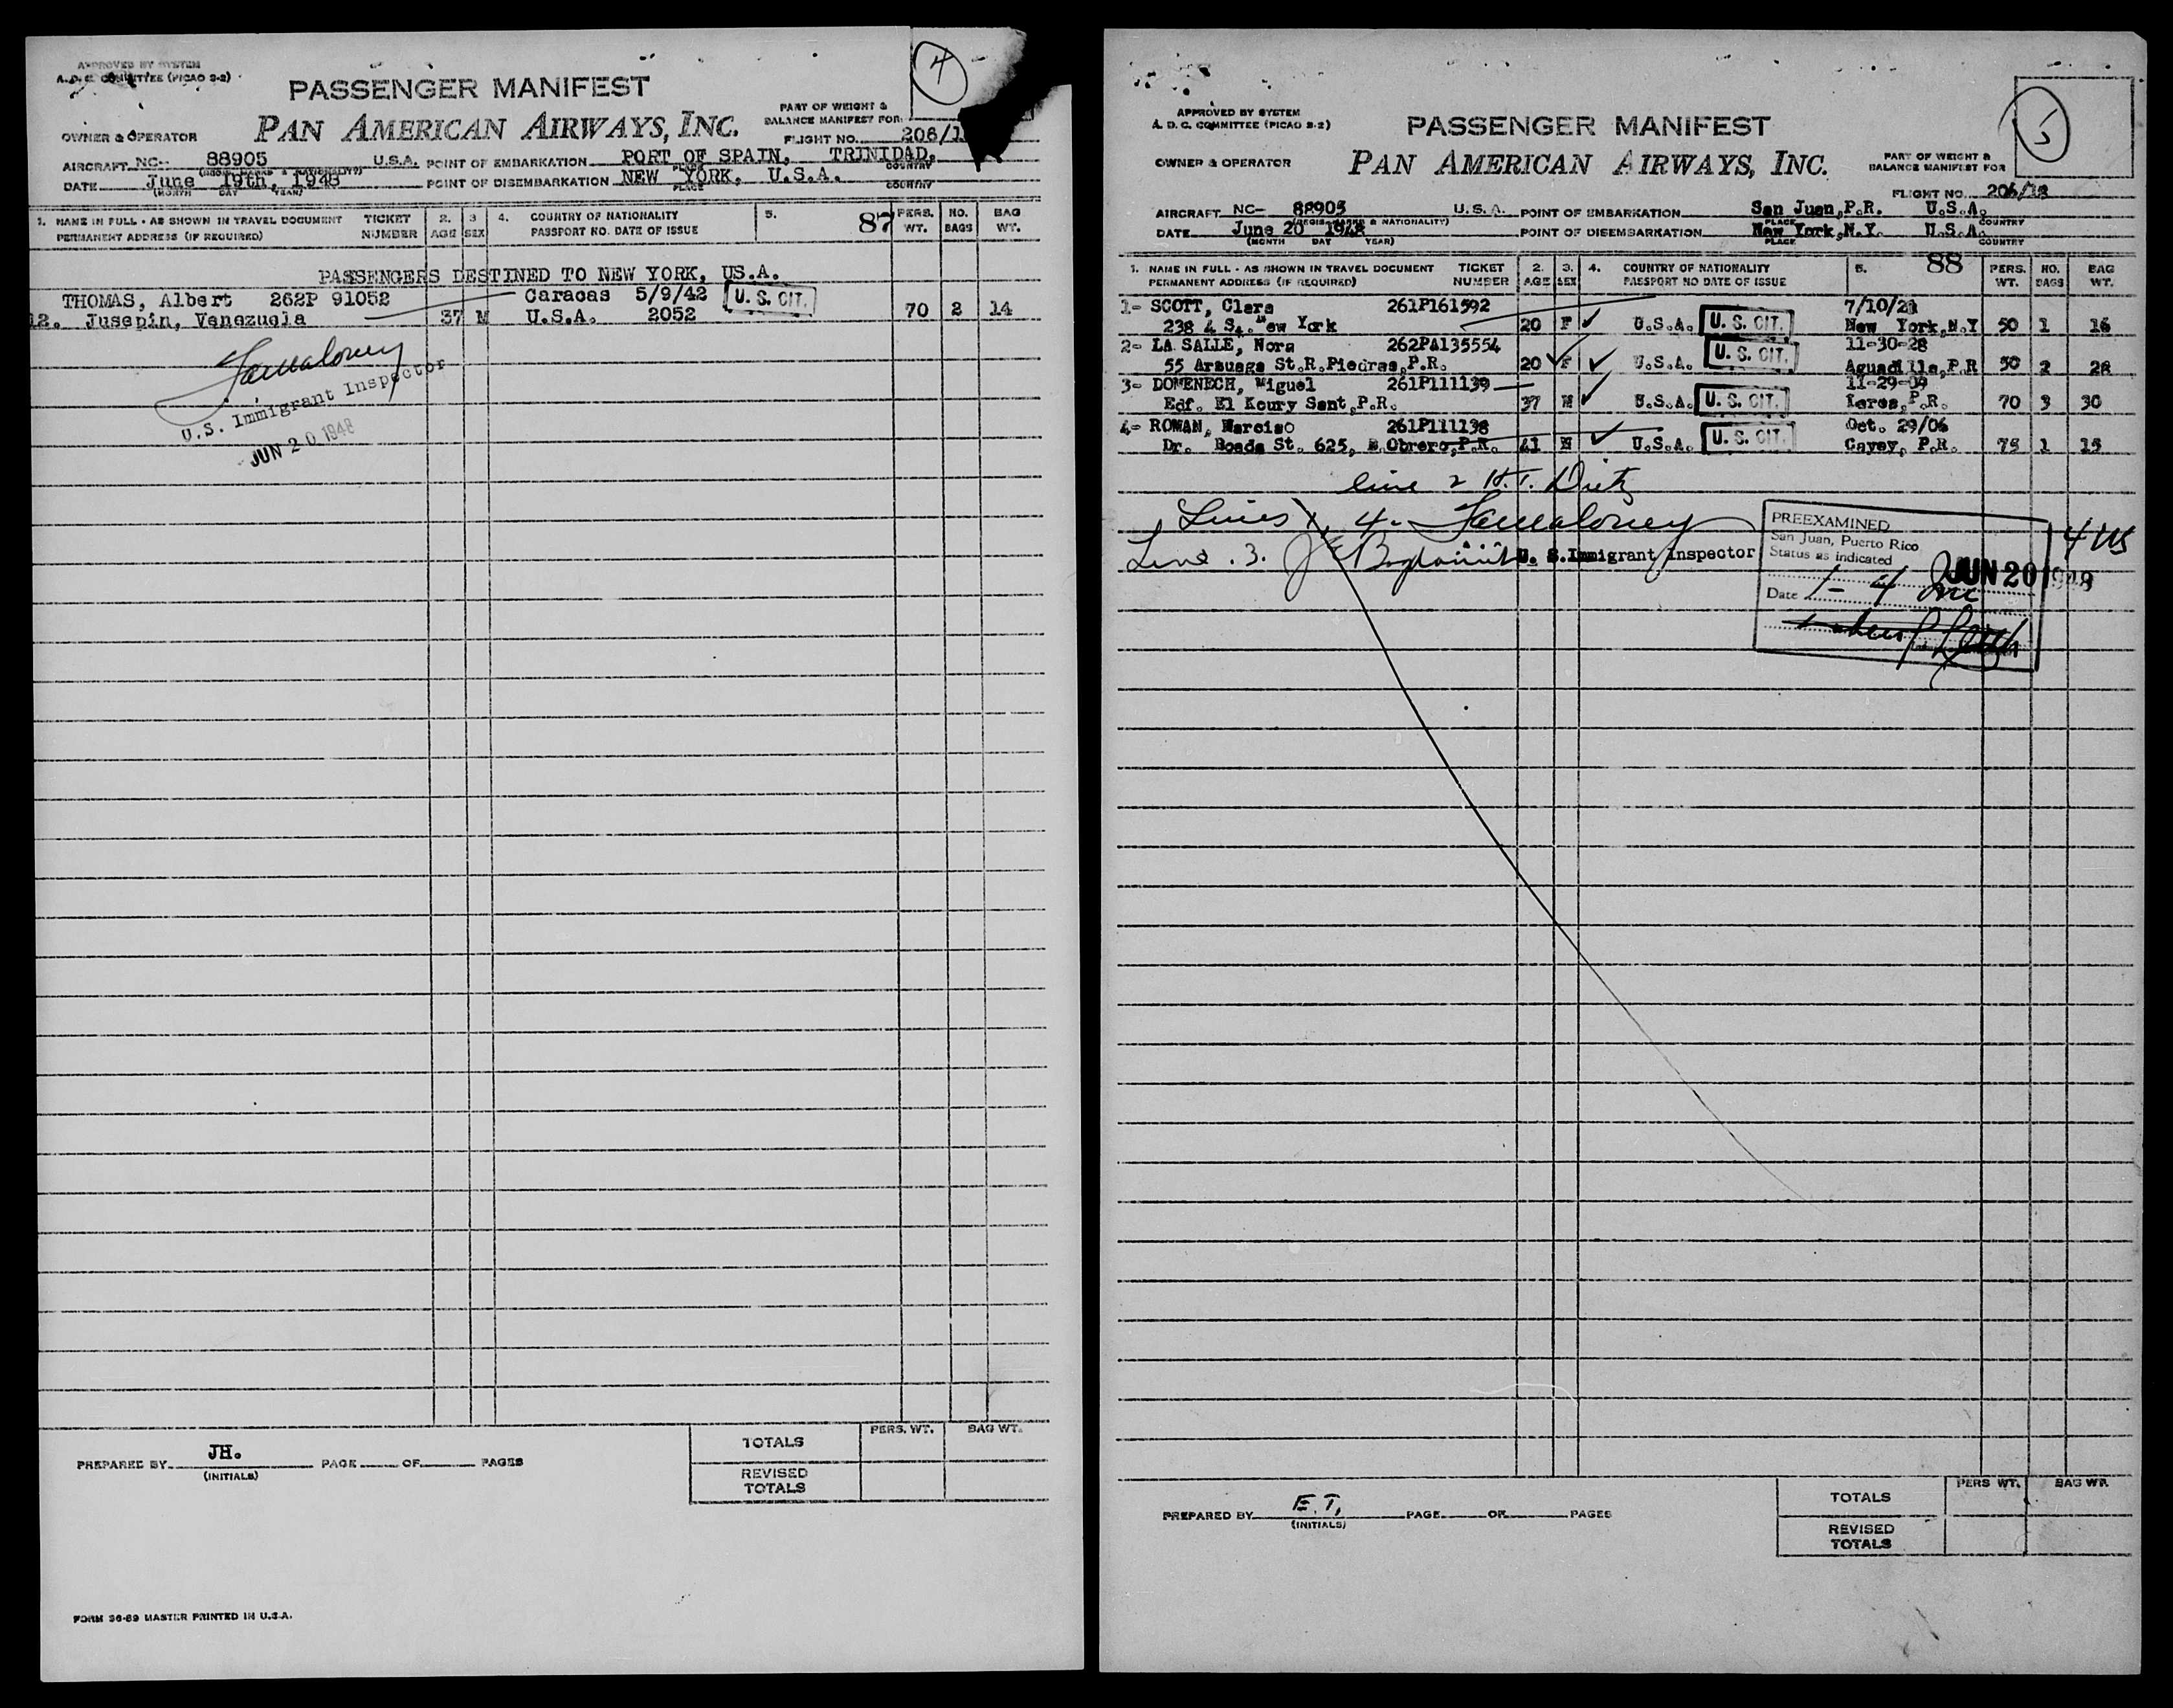 APPROVED BY SYSTEM
A. D. C. COMMITTEE (PICAO 2-2)
4
PASSENGER MANIFEST
PAN AMERICAN AIRWAYS, INC.
PART OF WEIGHT &
BALANCE MANIFEST FOR
OWNER & OPERATOR
FLIGHT NO. 206/1
AIRCRAFT NC- 88905 U.S.A. POINT OF EMBARKATION PORT OF SPAIN, TRINIDAD,
(REGIS. MARKS & NATIONALITY) PLACE COUNTRY
DATE June 19th, 1948 POINT OF DISEMBARKATION NEW YORK, U.S.A.
(MONTH DAY YEAR) PLACE COUNTRY
1. NAME IN FULL - AS SHOWN IN TRAVEL DOCUMENT TICKET 2. 3 4. COUNTRY OF NATIONALITY 5. 87 PERS. NO. BAG
PERMANENT ADDRESS (IF REQUIRED) NUMBER AGE SEX PASSPORT NO. DATE OF ISSUE WT. BAGS WT.
PASSENGERS DESTINED TO NEW YORK, US.A.
THOMAS, Albert 262P 91052 Caracas 5/9/42 U. S. CIT.
12. Jusepin, Venezuela 37 M U.S.A. 2052 70 2 14
U.S. Immigrant Inspector
JUN 20 1948
TOTALS PERS. WT. BAG WT.
REVISED
TOTALS
PREPARED BY JH. PAGE OF PAGES
(INITIALS)
FORM 36-69 MASTER PRINTED IN U.S.A.
APPROVED BY SYSTEM
A. D. C. COMMITTEE (PICAO 2-2)
5
PASSENGER MANIFEST
PAN AMERICAN AIRWAYS, INC.
PART OF WEIGHT &
BALANCE MANIFEST FOR
OWNER & OPERATOR
FLIGHT NO. 206/18
AIRCRAFT NC- 88905 U.S.A. POINT OF EMBARKATION San Juan,P.R. U.S.A.
(REGIS. MARKS & NATIONALITY) PLACE COUNTRY
DATE June 20 1948 POINT OF DISEMBARKATION New York,N.Y. U.S.A.
(MONTH DAY YEAR) PLACE COUNTRY
1. NAME IN FULL - AS SHOWN IN TRAVEL DOCUMENT TICKET 2. 3. 4. COUNTRY OF NATIONALITY 5. 88 PERS. NO. BAG
PERMANENT ADDRESS (IF REQUIRED) NUMBER AGE SEX PASSPORT NO DATE OF ISSUE WT. BAGS WT.
1- SCOTT, Clara 261P161592 7/10/21
238 4 St. New York 20 F U.S.A. U. S. CIT. New York,N.Y 50 1 16
2- LA SALLE, Nora 262PA135554 11-30-28
55 Arzuaga St.R.Piedras,P.R. 20 F U.S.A. U. S. CIT. Aguadilla,P.R 50 2 28
3- DOMENECH, Miguel 261P111139 11-29-09
Edf. El Koury Sant,P.R. 37 M U.S.A. U. S. CIT. P.R. 70 3 30
4- ROMAN, Narciso 261P111138 Oct. 29/06
Dr. Boada St. 625, B.Obrero,P.R. 41 M U.S.A. U. S. CIT. Cayey, P.R. 75 1 15
line 2 H.T. Dietz
Lines 1, 4.
Line .3. U. S. Immigrant Inspector
PREEXAMINED
San Juan, Puerto Rico
Status as indicated
JUN 20 1948
Date 1-4 Inc
4 US
TOTALS PERS WT. BAG WT.
REVISED
TOTALS
PREPARED BY E.T. PAGE OF PAGES
(INITIALS)